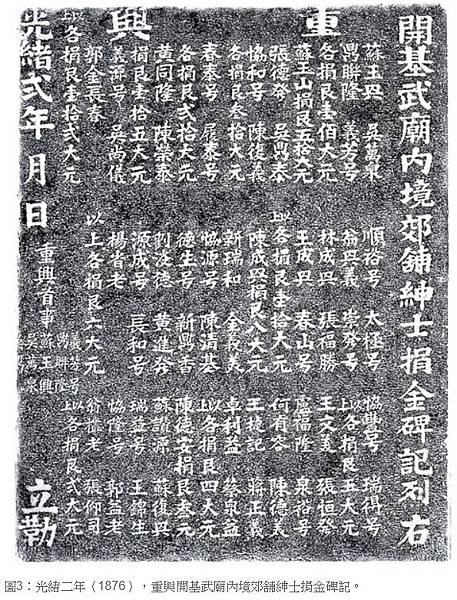 開基武廟內境郊舖紳士捐金碑記列右
重興
蘇玉興 吳萬泉 順裕号 太極号 協譽号 瑞得号
義芳号 翁興義 崇發号 以上各捐艮五大元
各捐艮壹佰大元 林成興 張福勝 王文美 張恒發
蘇王山捐艮五拾大元 王成興 春山号 盧福隆 泉裕号
張德發 吳興泰 以上各捐艮壹拾大元 何有容 陳德美
協和号 陳復義 陳成興捐艮八大元 王捷記 蔣正義
各捐艮叁拾大元 新瑞和 金義美 卓利益 蔡泉益
春泰号 協源号 陳清基 以上各捐艮四大元
各捐艮弍拾大元 德生号 新興香 陳德安捐艮叁元
黃同隆 陳榮泰 黃進發 蘇讚源 蘇復興
捐艮壹拾五大元 源成号 長和号 瑞益号 王錦生
義源号 吳尚儀 楊省老 協隆号 郭益老
郭金長春 以上各捐艮六大元 翁穩老 張仰司
以上各捐艮壹拾弍大元 以上各捐艮弍大元
光緒弍年 月 日 重興首事 義芳号 蘇玉興 吳萬泉 立勒
圖3：光緒二年（1876），重興開基武廟內境郊舖紳士捐金碑記。